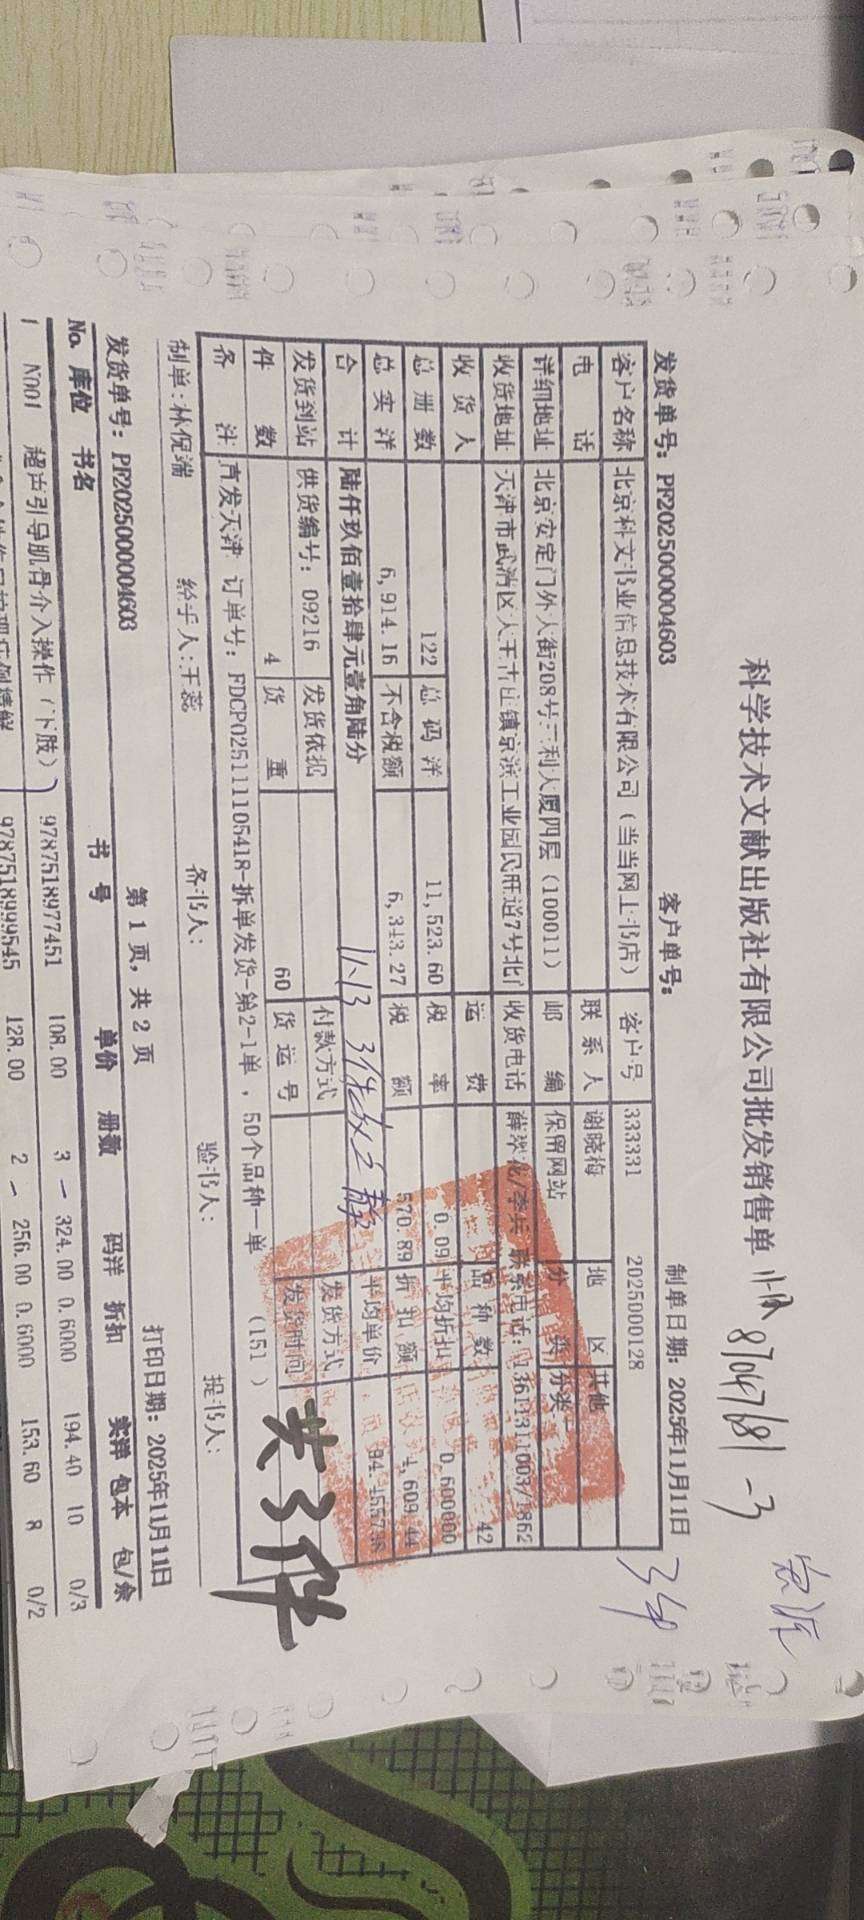 科学技术文献出版社有限公司批发销售单
87047681-3
发货单号：PF2025000004603 客户单号： 制单日期：2025年11月11日
客户名称 北京科文书业信息技术有限公司（当当网上书店） 客户号 333331 2025000128
电话 联系人 谢晓梅 地区 其他
详细地址 北京安定门外大街208号三利大厦四层（100011） 邮编 保留网站 分类 分类
收货地址 天津市武清区大王古庄镇京滨工业园民旺道7号北门 收货电话 薛翠龙/李兵 联系电话：13611311003/1862
收货人 运费 品种数 42
总册数 122 总码洋 11,523.60 税率 0.09 平均折扣 0.600000
总实洋 6,914.16 不含税额 6,343.27 税额 570.89 折扣额 4,609.44
合计 陆仟玖佰壹拾肆元壹角陆分 平均单价 94.455738
11-13 3件
发货到站 供货编号：09216 发货依据 付款方式 发货方式
件数 4 货重 60 货运号 发货时间
备注 直发天津 订单号：FDCP025111105418-拆单发货-第2-1单，50个品种一单 （151）
共3件
制单：林倪端 经手人：王蕊 备书人： 验书人： 提书人：
第 1 页，共 2 页 打印日期：2025年11月11日
发货单号：PF2025000004603
No. 库位 书名 书号 单价 册数 码洋 折扣 实洋 包本 包/余
1 N001 超声引导肌骨介入操作（下肢） 9787518977451 108.00 3 324.00 0.6000 194.40 10 0/3
9787518999545 128.00 2 256.00 0.6000 153.60 8 0/2